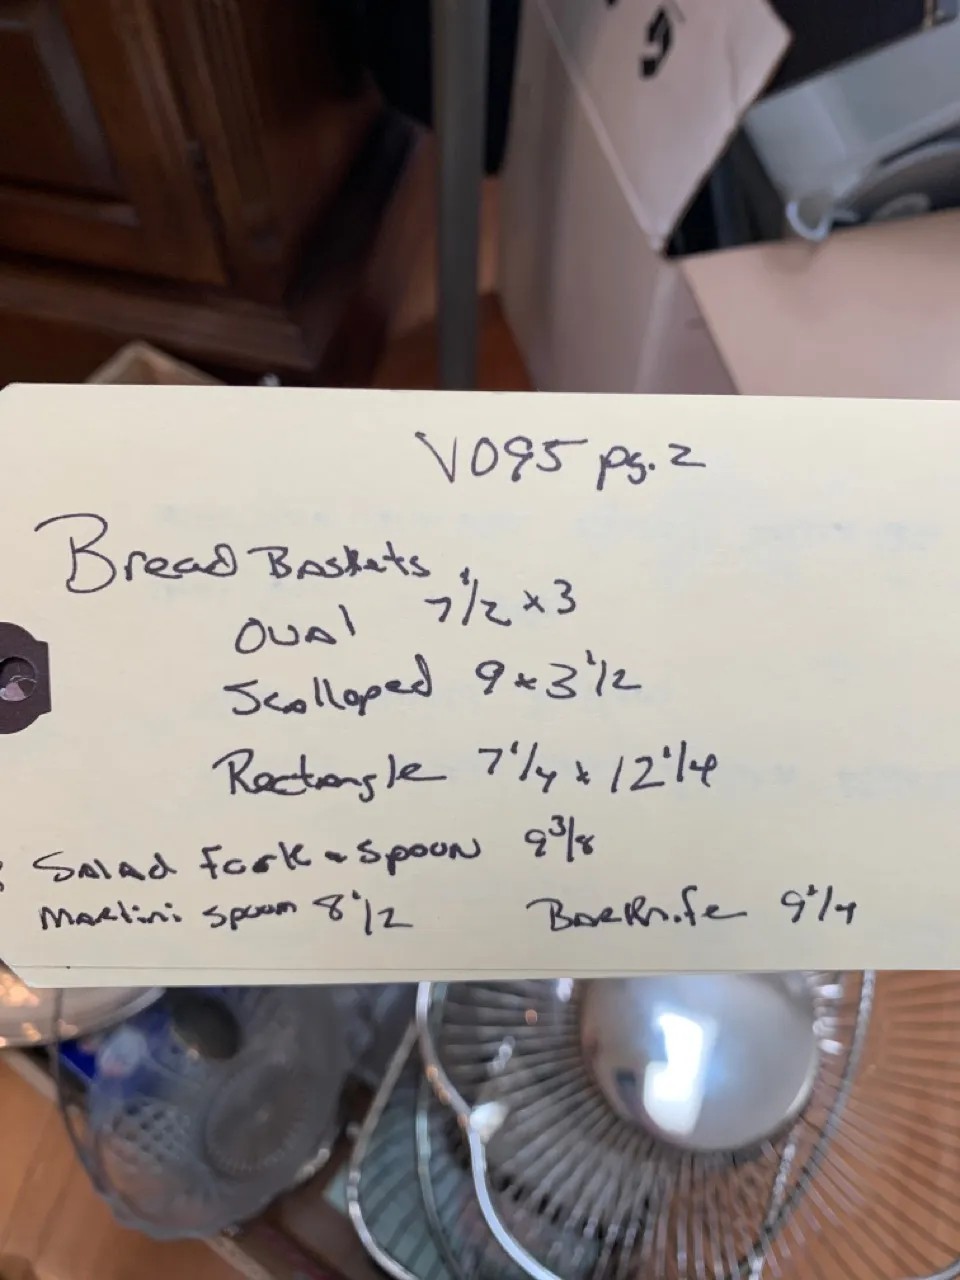 V095 pg. 2
Bread Baskets
Oval 7 1/2 x 3
Scalloped 9 x 3 1/2
Rectangle 7 1/4 x 12 1/4
Salad Fork & Spoon 9 3/8
Martini Spoon 8 1/2 Bar Knife 9 1/4